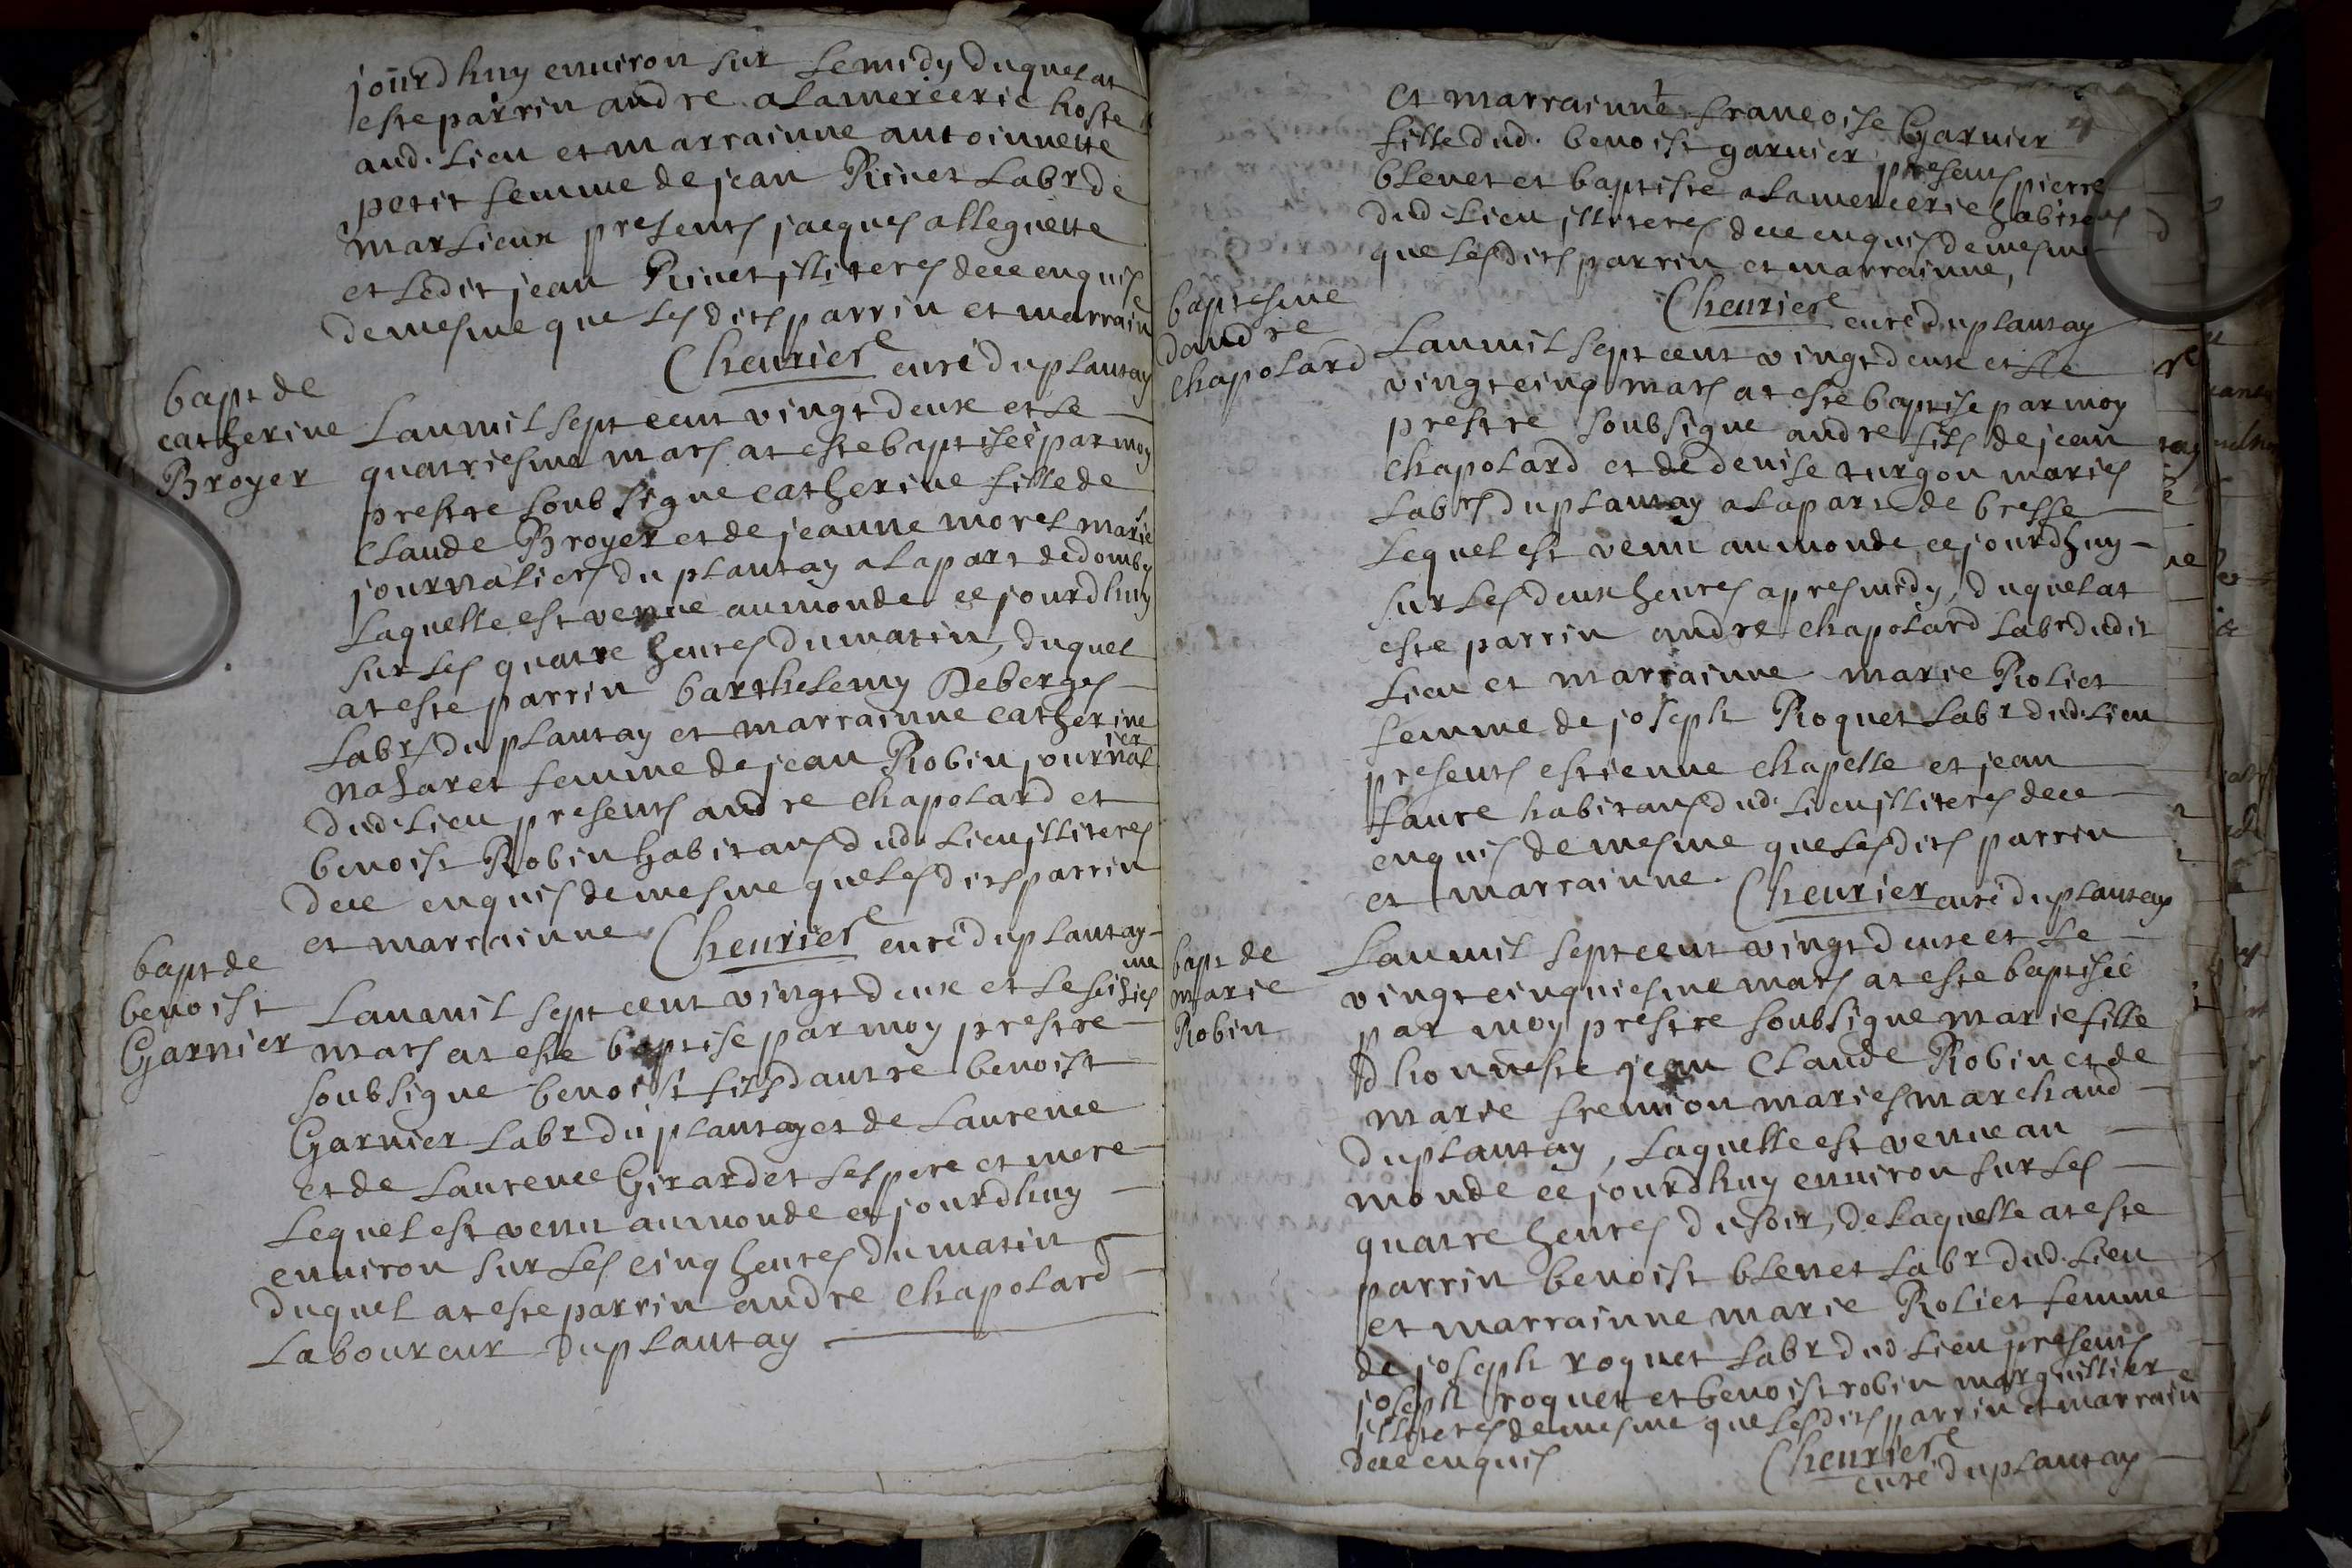 jourdhuy environ sur le midy duquel at
este parrin andre alamercerie hoste
aud. lieu et marrainne antoinnette
petit femme de jean Rivet labr de
marlieux presents jacques alleguette
et ledit jean Rivet illiteres dece enquis
de mesme que lesdits parrin et marraine
Cheurier curé du plantay
bapt de
catherine
Broyer
Lan mil sept cent vingt deux et le
quatriesme mars at este baptiseé par moy
prestre soubsigne catherine fille de
claude Broyer et de jeanne morel marie
journaliers du plantay a la part de domby
laquelle est venue au monde ce jourdhuy
sur les quatre heures du matin, duquel
at este parrin barthelemy Deberges
labr du plantay et marrainne catherine
naharet femme de jean Robin journalier
dud. lieu presents andre chapolard et
benoist Robin habitans dud. lieu illiteres
dece enquis de mesme que lesdits parrin
et marrainne Cheurier curé du plantay
bapt de
benoist
Garnier
Lan mil sept cent vingt deux et le seisiesme
mars at este baptise par moy prestre
soubsigne benoist fils dautre benoist
Garnier labr du plantay et de laurence
et de laurence Girardet ses pere et mere
lequel est venu au monde ce jourdhuy
environ sur les cinq heures du matin
duquel at este parrin andre chapolard
laboureur du plantay
et marrainne francoise Garnier
fille dud. benoist garnier presents pierre
blenet et baptiste alamercerie habitans
dud. lieu illiteres dece enquis de mesme
que lesdits parrin et marrainne,
Cheurier curé du plantay
baptesme
dandre
chapolard
Lan mil sept cent vingt deux et le
vingt cinq mars at este baptise par moy
prestre soubsigne andre fils de jean
chapolard et de denise turgon maries
labrs du plantay a la part de bresse
lequel est venu au monde ce jourdhuy
sur les deux heures apres midy, duquel at
este parrin andre chapolard labr dudit
lieu et marrainne marie Roliet
femme de joseph Roquet labr dud. lieu
presents estienne chapelle et jean
faure habitans dud. lieu illiteres dece
enquis de mesme que lesdits parrin
et marrainne. Cheurier curé du plantay
bapt de
marie
Robin
Lan mil sept cent vingt deux et le
vingt cinquiesme mars at este baptiseé
par moy prestre soubsigne marie fille
dhonneste jean claude Robin et de
marie fremion maries marchand
du plantay, laquelle est venue au
monde ce jourdhuy environ sur les
quatre heures du soir, de laquelle at este
parrin benoist blenet labr dud. lieu
et marrainne marie Roliet femme
de joseph roquet labr dud. lieu presents
joseph roquet et benoist robin marguillier
illiteres de mesme que lesdits parrin et marraine
dece enquis Cheurier
curé du plantay